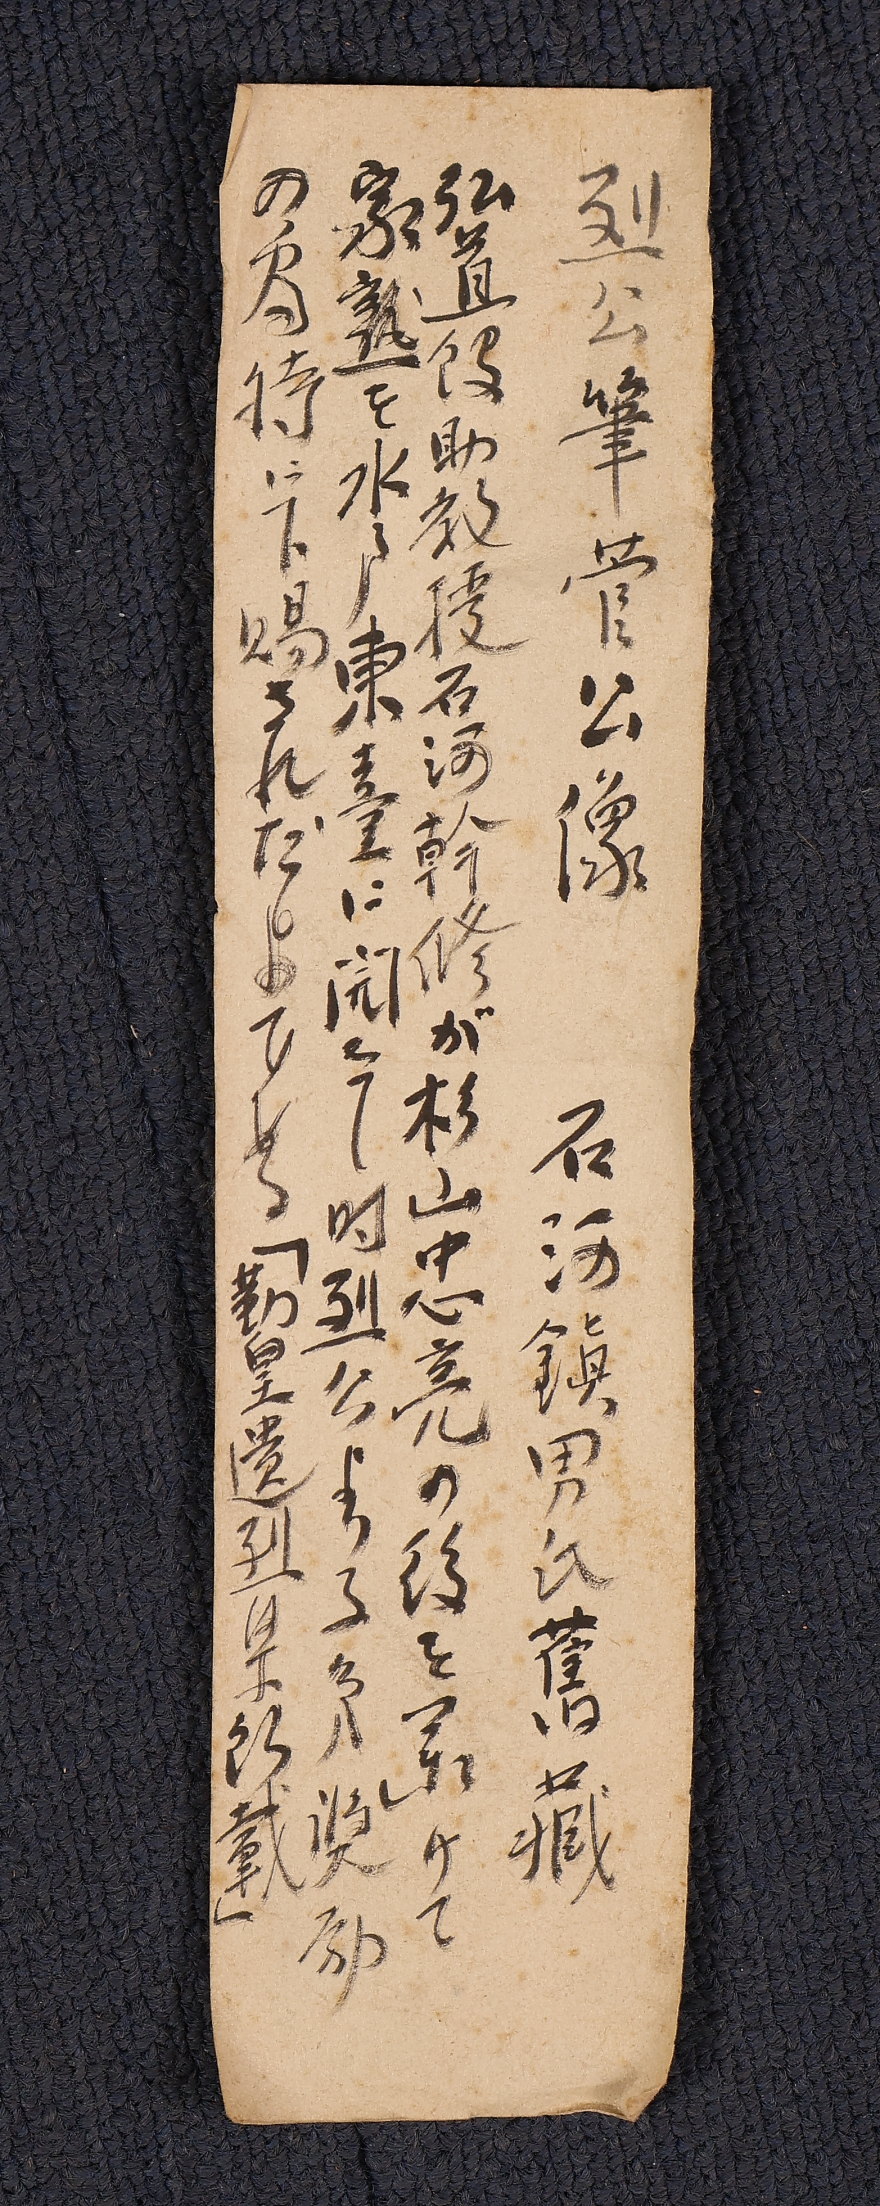 烈公筆菅公像　石河鎮男氏舊藏
弘道館助教授石河幹修が杉山忠亮の後を承けて
家塾を水戸東臺に開くに時烈公よりその奨勵
の為特に下賜されたものである
「勤皇遺烈集所載」